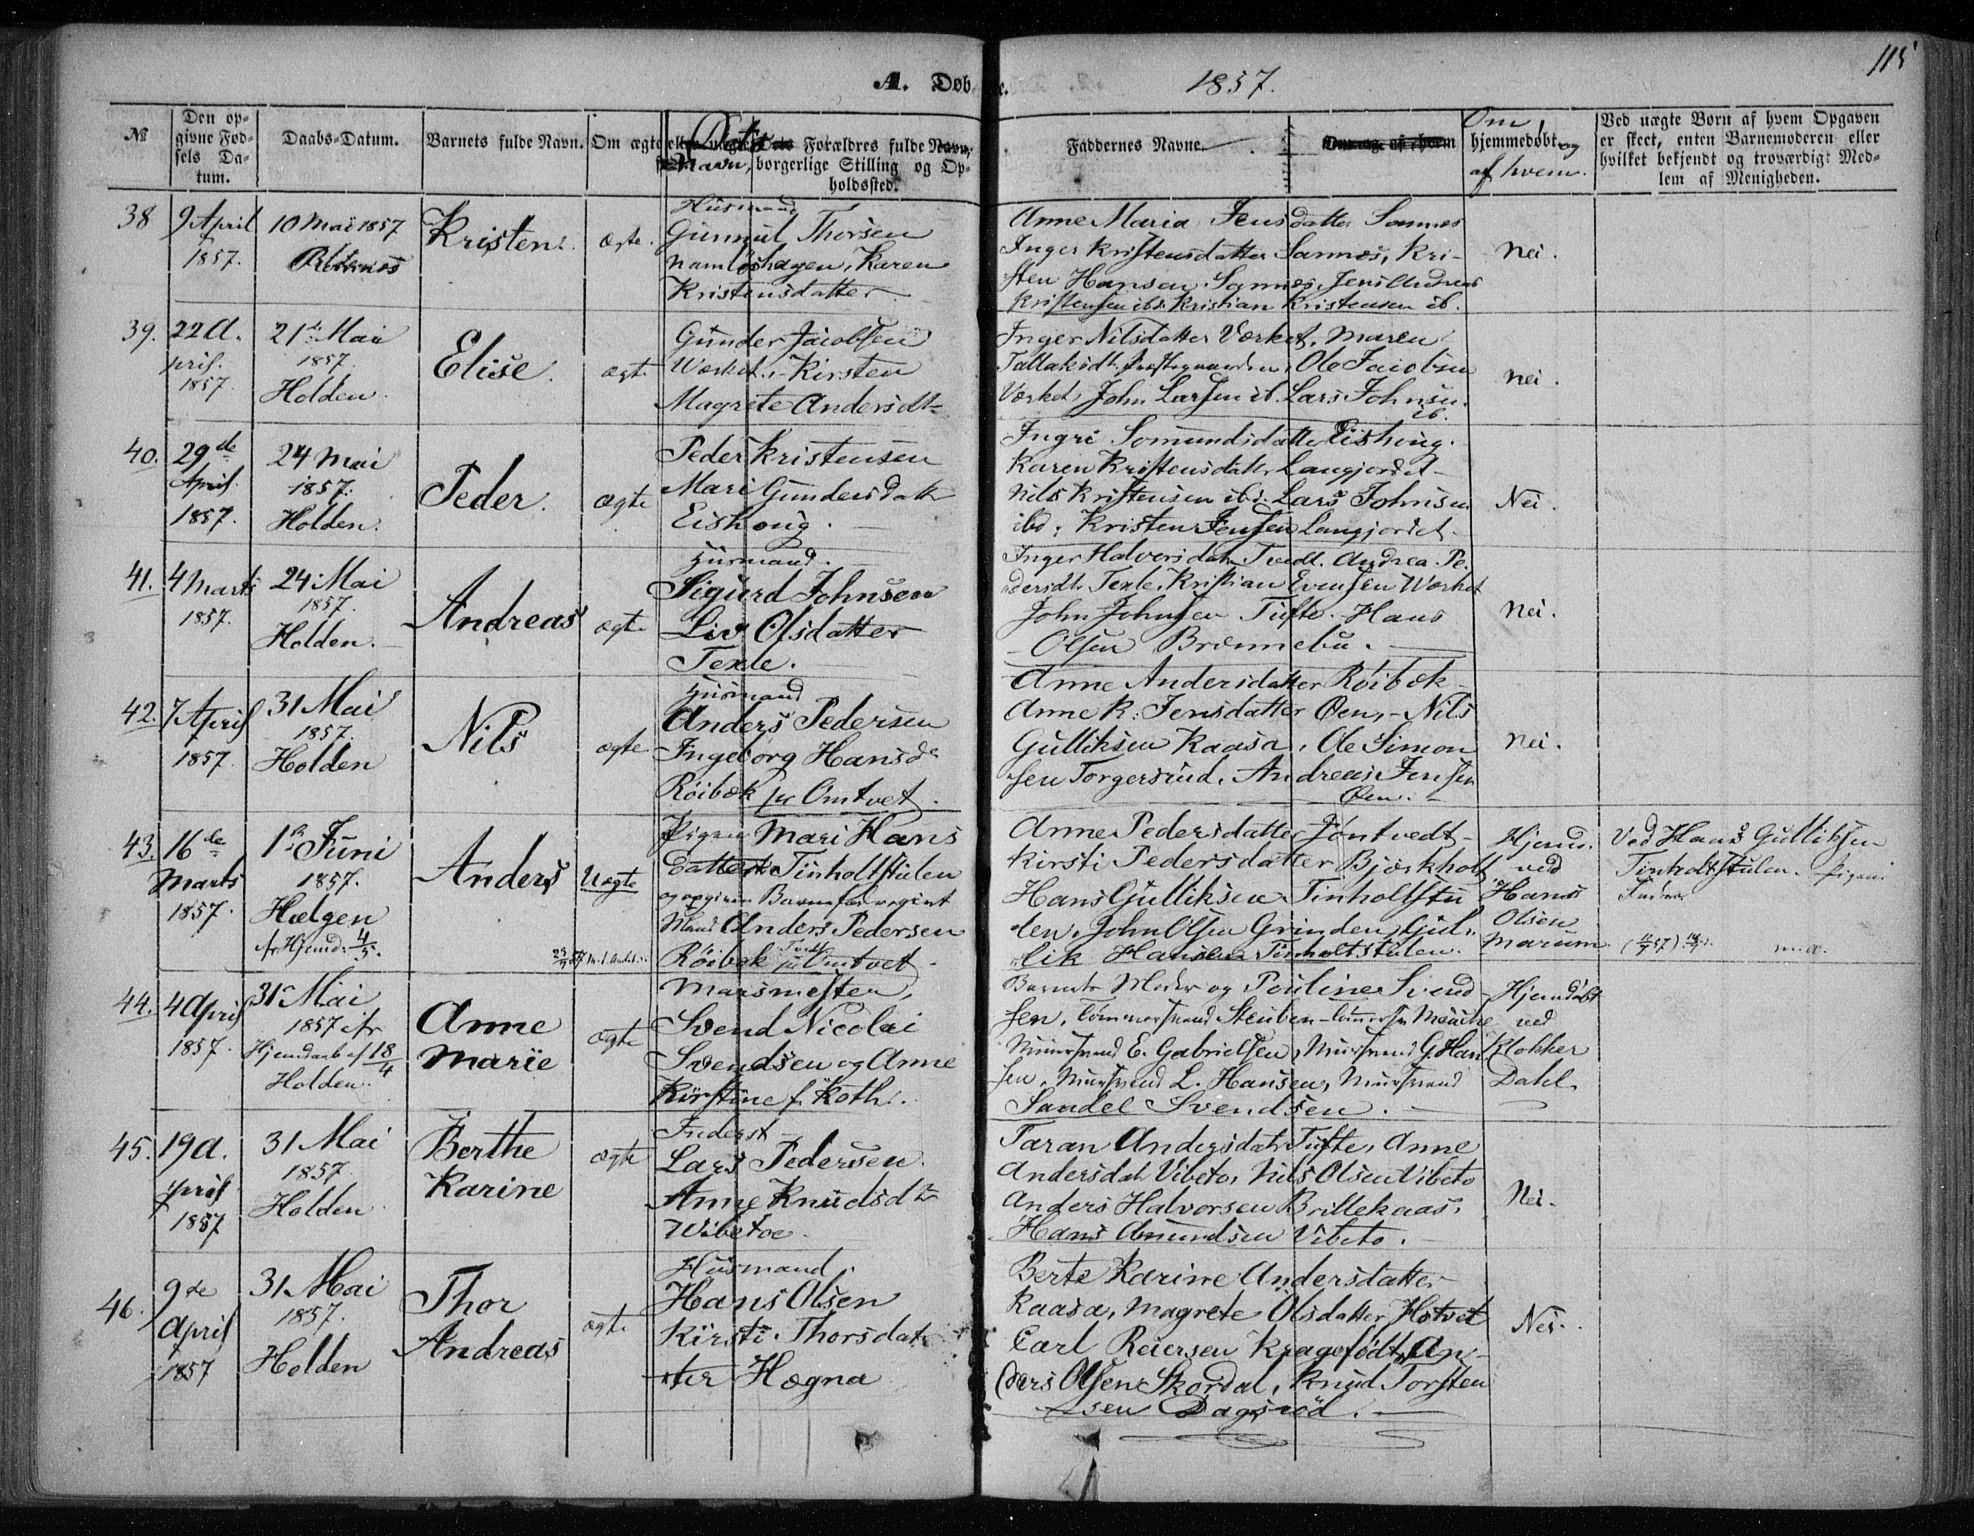 115
A. Døb e. 1857.
№
Den op-
givne Fød-
sels Da-
tum.
Daabs-Datum.
Barnets fulde Navn.
Om ægte eller uægte
Forældres fulde Navn,
Navn, borgerlige Stilling og Op-
holdssted.
Faddernes Navne.
Om
hjemmedøbt og
af hvem.
Ved uægte Børn af hvem Opgaven
er skeet, enten Barnemoderen eller
hvilket bekjendt og troværdigt Med-
lem af Menigheden.
38
9 April
1857.
10 Mai 1857
Kristen.
ægte.
Husmand
Gunnul Thorsen
Namløshagen, Karen
Kristensdatter
Anne Maria Jensdatter Sannes
Inger Kristensdatter Sannes, Kri-
sten Hansen Sannes, Jens Andreas
Kristensen ibd. Kristian Kristensen ib.
Nei.
39.
22 A.
pril.
1857.
21de Mai
1857.
Holden.
Elise.
ægte
Gunder Jacobsen
Værket, Kirsten
Magrete Andersdt
Inger Nilsdatter Værket, Maren
Tallaksdt. Præstegaarden, Ole Jacobsen
Værket, John Larsen ib. Lars Johnsen
ib.
Nei.
40.
29de
April
1857.
24 Mai
1857.
Holden.
Peder.
ægte
Peder Kristensen
Mari Gundersdatt
Eishoug.
Ingri Somundsdatter Eishoug.
Karen Kristensdatter Langjordet
Nils Kristensen ibd. Lars Johnsen
ibd: Kristen Jensen Langjordet
Nei.
41.
4 Marts
1857.
24 Mai
1857.
Holden.
Andreas
ægte
Husmand.
Sigurd Johnsen
Liv Olsdatter
Texle.
Inger Halvorsdatr Tvedt. Andrea Pe-
dersdt. Texle. Kristian Evensen Værket
John Johnsen Tufte. Hans
Olsen Brennebu.
Nei.
42.
7 April
1857
31 Mai
1857.
Holden
Nils
ægte
Husmand
Anders Pedersen
Ingeborg Hansd.
Røibæk Omtvet.
Anne Andersdatter Røibæk
Anne K. Jensdatter Øen, Nils
Gulliksen Kaasa, Ole Simon
sen Torgersrud, Andreas Jensen
Øen.
Nei.
43.
16de
Marts
1857.
1ste Juni
1857.
Helgen
Hjemd. 4/5.
Anders
Uægte
Pigen Mari Hans
datter Tinholtstulen
og opgiven Barnefader
Anders Pedersen
Røibæk Omtvet
Anne Pedersdatter Jøntvedt
Kirsti Pedersdatter Bjørkholt
Hans Gulliksen Tinholtstu
len. John Olsen Grinden, Gul-
lik Hansen Tinholtstulen.
Hjemd.
ved
Hans
Olsen
Marum.
Ved Hans Gulliksen
Tinholtstulen. Pigens
Fader
44.
4 April
1857.
31 Mai
1857
Hjemdaab af 18/4
Holden.
Anne
Marie
ægte
Marsmester,
Svend Nicolai
Svendsen og Anne
Kirstine f. Koth.
Barnets Moder og Pouline Svend
sen, Tømmermand Steuben
E. Gabrielsen, Muurmand G. Han
sen, Murmand L. Hansen, Murmand
Sandel Svendsen.
Hjemdøbt
ved
Klokker
Dahl.
45.
19 A.
pril
1857
31 Mai
1857.
Holden.
Berthe
Karine
ægte
Inderst
Lars Pedersen.
Anne Knudsdtr
Wibetoe.
Taran Andersdatr Tufte, Anne
Andersdat Vibeto, Nils Olsen Vibeto
Anders Halvorsen Brillekaas,
Hans Amundsen Vibeto.
Nei.
46.
9de
April
1857
31 Mai
1857.
Holden
Thor
Andreas
ægte
Husmand.
Hans Olsen
Kirsti Thorsdat
ter Hægna
Berte Karine Andersdatter
Kaasa, Magrete Olsdatter Hotvet
Carl Reiersen Kragefodt, An-
ders Olsen Skordal, Knud Torsten
sen Dagsrød.
Nei.